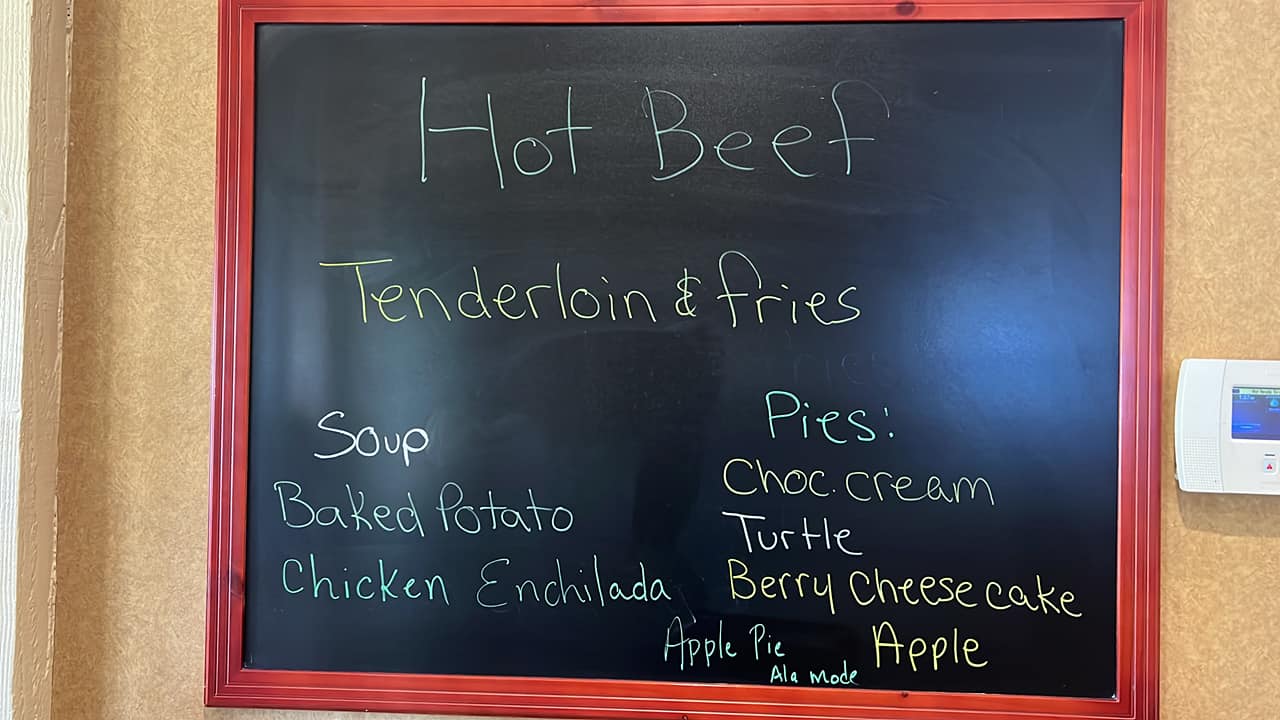 Hot Beef
Tenderloin & fries
Soup
Baked Potato
Chicken Enchilada
Pies:
Choc. cream
Turtle
Berry Cheese cake
Apple
Apple Pie
Ala mode